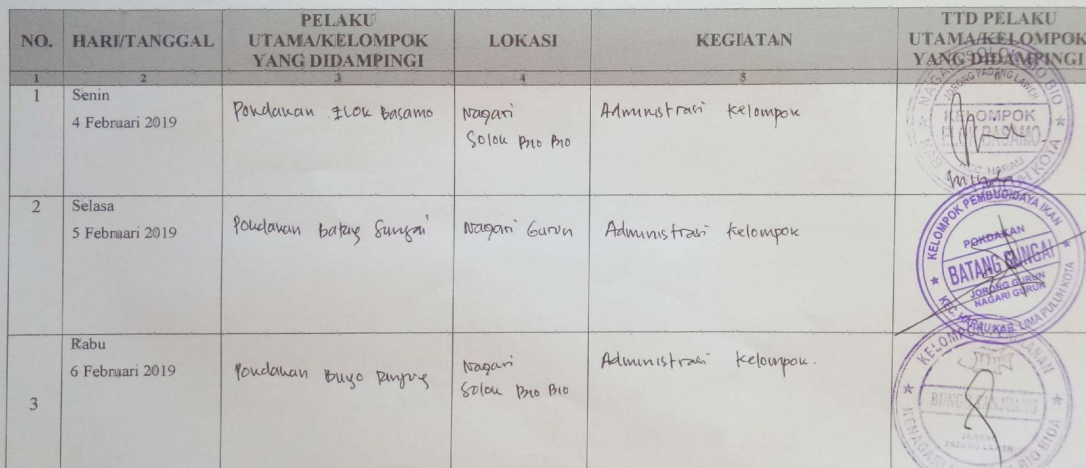 NO.
HARI/TANGGAL
PELAKU
UTAMA/KELOMPOK
YANG DIDAMPINGI
LOKASI
KEGIATAN
TTD PELAKU
UTAMA/KELOMPOK
YANG DIDAMPINGI
1 2 3 4 5
1
Senin
4 Februari 2019
Pokdakan Elok Basamo
Nagari
Solok Bio Bio
Administrasi kelompok
JORONG PADANG LAWEH
KELOMPOK
ELOK BASAMO
2
Selasa
5 Februari 2019
Pokdakan Batang Sungai
Nagari Gurun
Administrasi kelompok
KELOMPOK PEMBUDIDAYA IKAN
POKDAKAN
BATANG SUNGAI
JORONG GURUN
NAGARI GURUN
KEC. HARAU KAB. LIMA PULUH KOTA
3
Rabu
6 Februari 2019
Pokdakan Bungo Tanjung
Nagari
Solok Bio Bio
Administrasi kelompok.